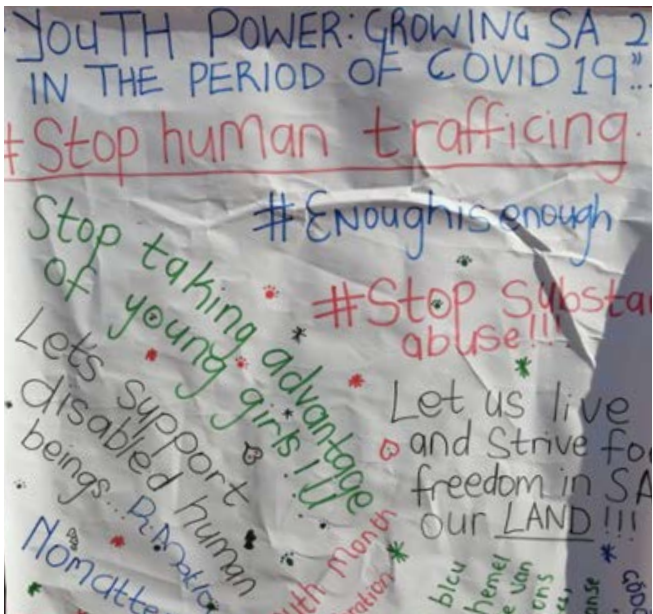 YOUTH POWER: GROWING SA 2
IN THE PERIOD OF COVID 19"...
#Stop human trafficing.
#Enoughisenough
Stop taking advantage
of young girls!!!
#Stop Substa
abuse!!!
Lets support
disabled human
beings...
Let us live
and strive fo
freedom in SA
our LAND!!!
Nomatte
uth Month
ration
bleu
hemel
e van
ens